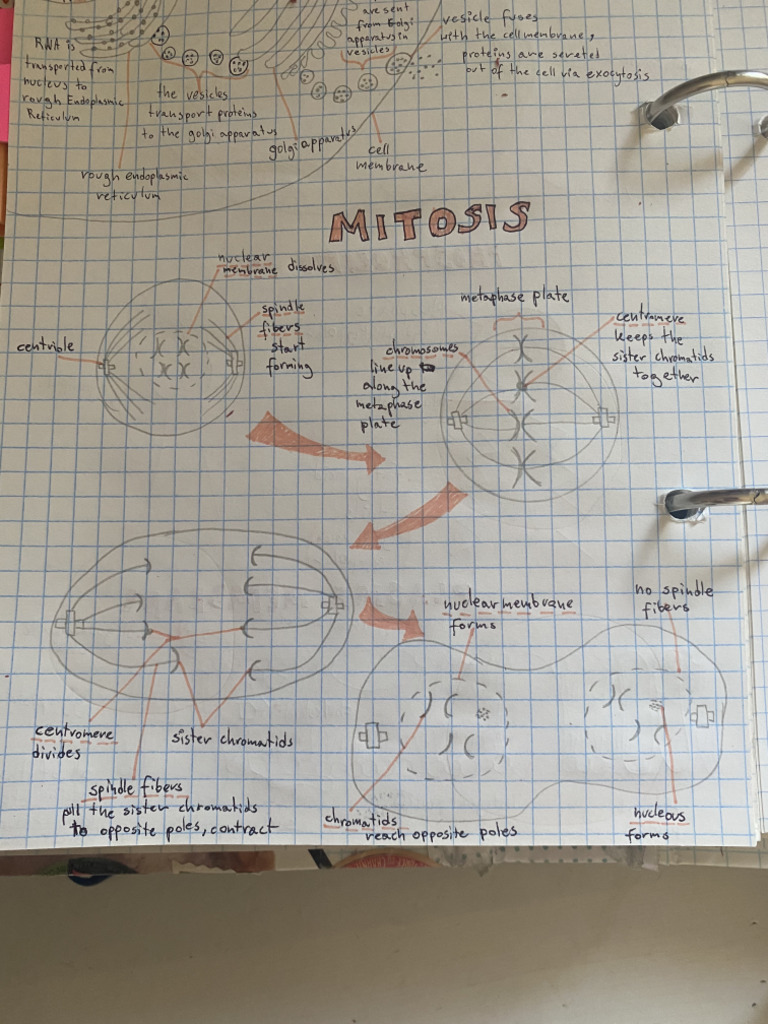 RNA is
transported from
nucleus to
rough Endoplasmic
Reticulum
the vesicles
transport proteins
to the golgi apparatus
are sent
from Golgi
apparatus in
vesicles
vesicle fuses
with the cell membrane,
proteins are sereted
out of the cell via exocytosis
rough endoplasmic
reticulum
golgi apparatus
cell
membrane
MITOSIS
nuclear
membrane dissolves
centriole
spindle
fibers
start
forming
metaphase plate
chromosomes
line up
along the
metaphase
plate
centramere
keeps the
sister chromatids
together
centromere
divides
sister chromatids
spindle fibers
pull the sister chromatids
to opposite poles, contract
nuclear membrane
forms
no spindle
fibers
chromatids
reach opposite poles
nucleous
forms